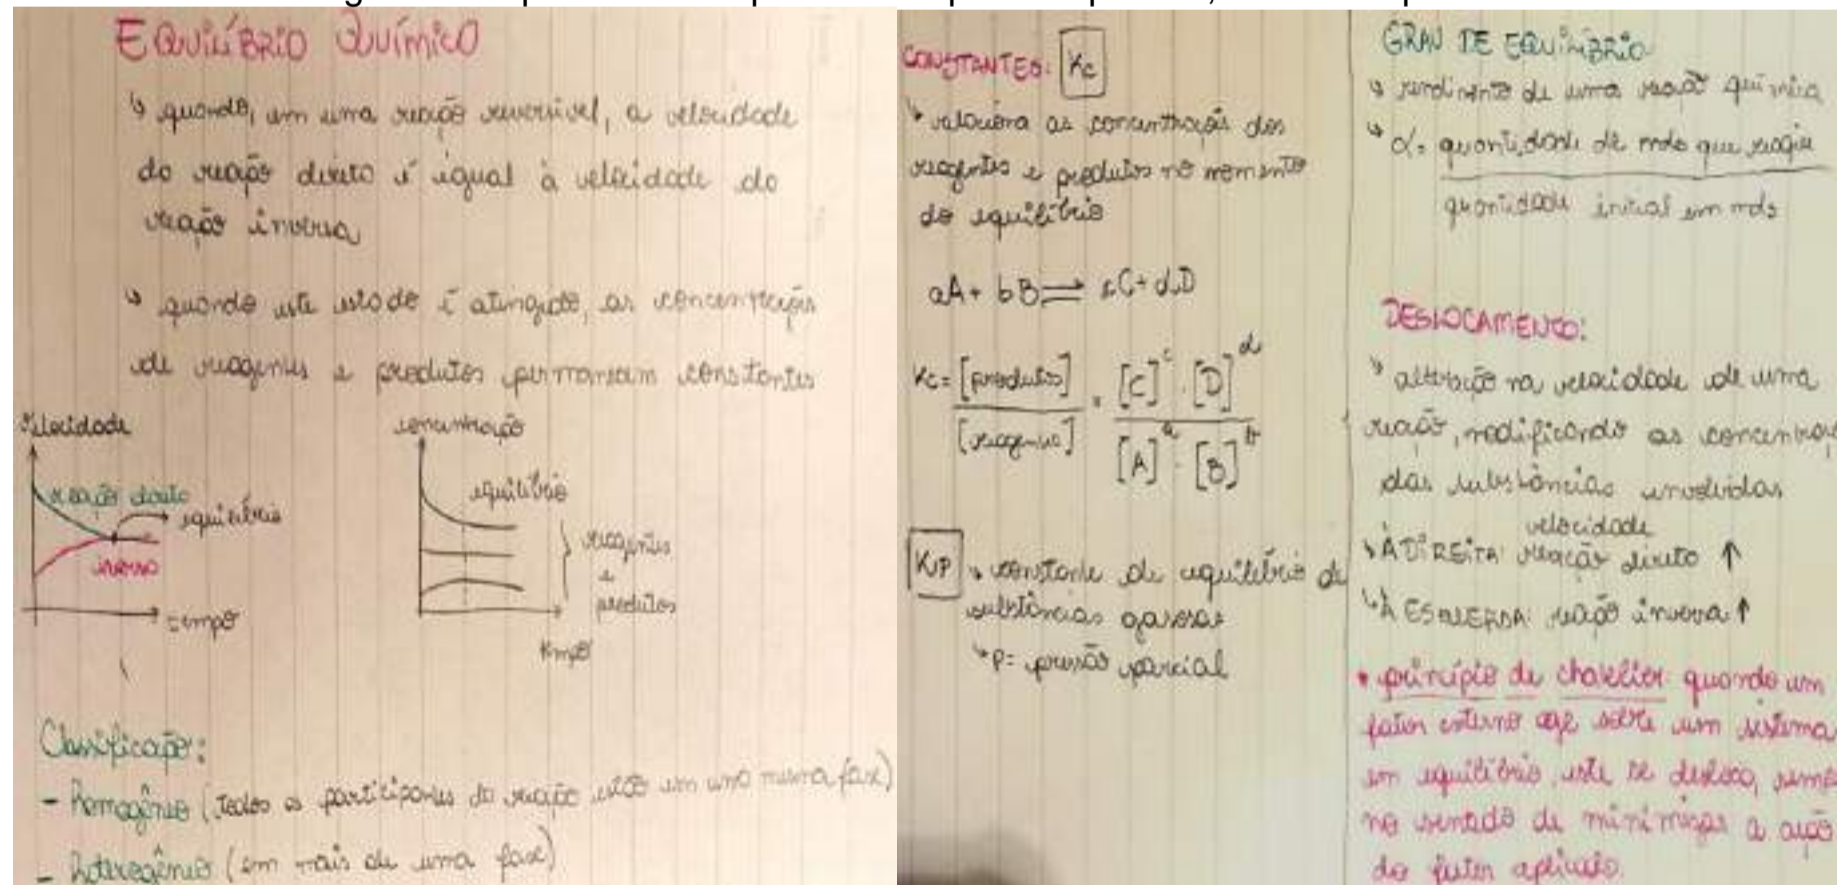 EQUILÍBRIO QUÍMICO
↳ quando, em uma reação reversível, a velocidade
da reação direta é igual à velocidade da
reação inversa
↳ quando este estado é atingido, as concentrações
de reagentes e produtos permanecem constantes
velocidade
reação direta
equilíbrio
inversa
tempo
concentração
equilíbrio
reagentes
e
produtos
tempo
Classificação:
- Homogêneo (todos os participantes da reação estão em uma mesma fase)
- Heterogêneo (em mais de uma fase)
CONSTANTES: Kc
↳ relaciona as concentrações dos
reagentes e produtos no momento
do equilíbrio
aA + bB ⇌ cC + dD
Kc = [produtos] / [reagentes] = [C]^c . [D]^d / [A]^a . [B]^b
Kp ↳ constante de equilíbrio de
substâncias gasosas
↳ P = pressão parcial
GRAU DE EQUILÍBRIO
↳ rendimento de uma reação química
↳ α = quantidade de mols que reagiu
quantidade inicial em mols
DESLOCAMENTO:
↳ alteração na velocidade de uma
reação, modificando as
das substâncias envolvidas
velocidade
↳ À DIREITA: reação direta ↑
↳ À ESQUERDA: reação inversa ↑
• princípio de chatelier: quando um
fator externo age sobre um sistema
em equilíbrio, este se desloca,
no sentido de minimizar a ação
do fator aplicado.